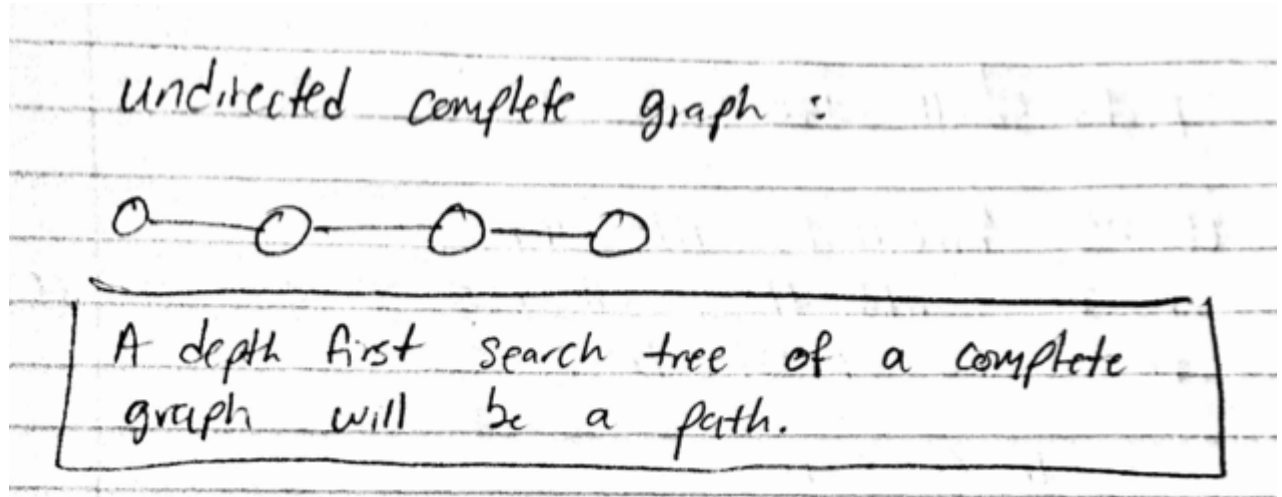 undirected complete graph :
A depth first search tree of a complete
graph will be a path.